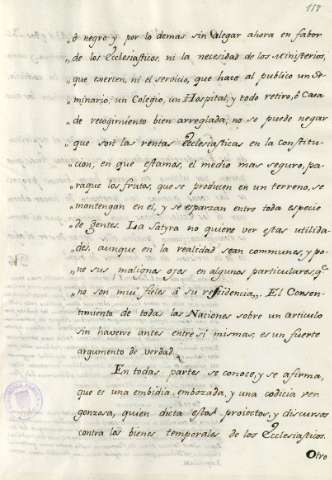 117
„ ò negro y por lo demas sin alegar ahora en fabor
„ de los Ecclesiasticos, ni la necesidad de los Ministerios,
„ que exercen, ni el servicio, que hace al publico un Se-
„ minario, un Colegio, un Hospital, y todo retiro, ò Casa
„ de recogimiento bien arreglada; no se puede negar
„ que son las rentas Ecclesiasticas en la constitu-
„ cion, en que estamos, el medio mas seguro, pa-
„ raque los frutos, que se producen en un terreno, se
„ mantengan en el, y se esparzan entre toda especie
„ de gentes. La Satyra no quiere ver estas utilida-
„ des, aunque en la realidad sean communes, y po-
„ ne sus malignos ojos en algunos particulares, qe
„ no son mui fieles à su residencia„. El Consen-
timiento de todas las Naciones sobre un articulo
sin haverse antes entre si mismas, es un fuerte
argumento de verdad.
En todas partes se conoce, y se afirma,
que es una embidia embozada, y una codicia ver-
gonzosa, quien dicta estos proiectos, y discursos
contra los bienes temporales de los Ecclesiasticos.
Otro